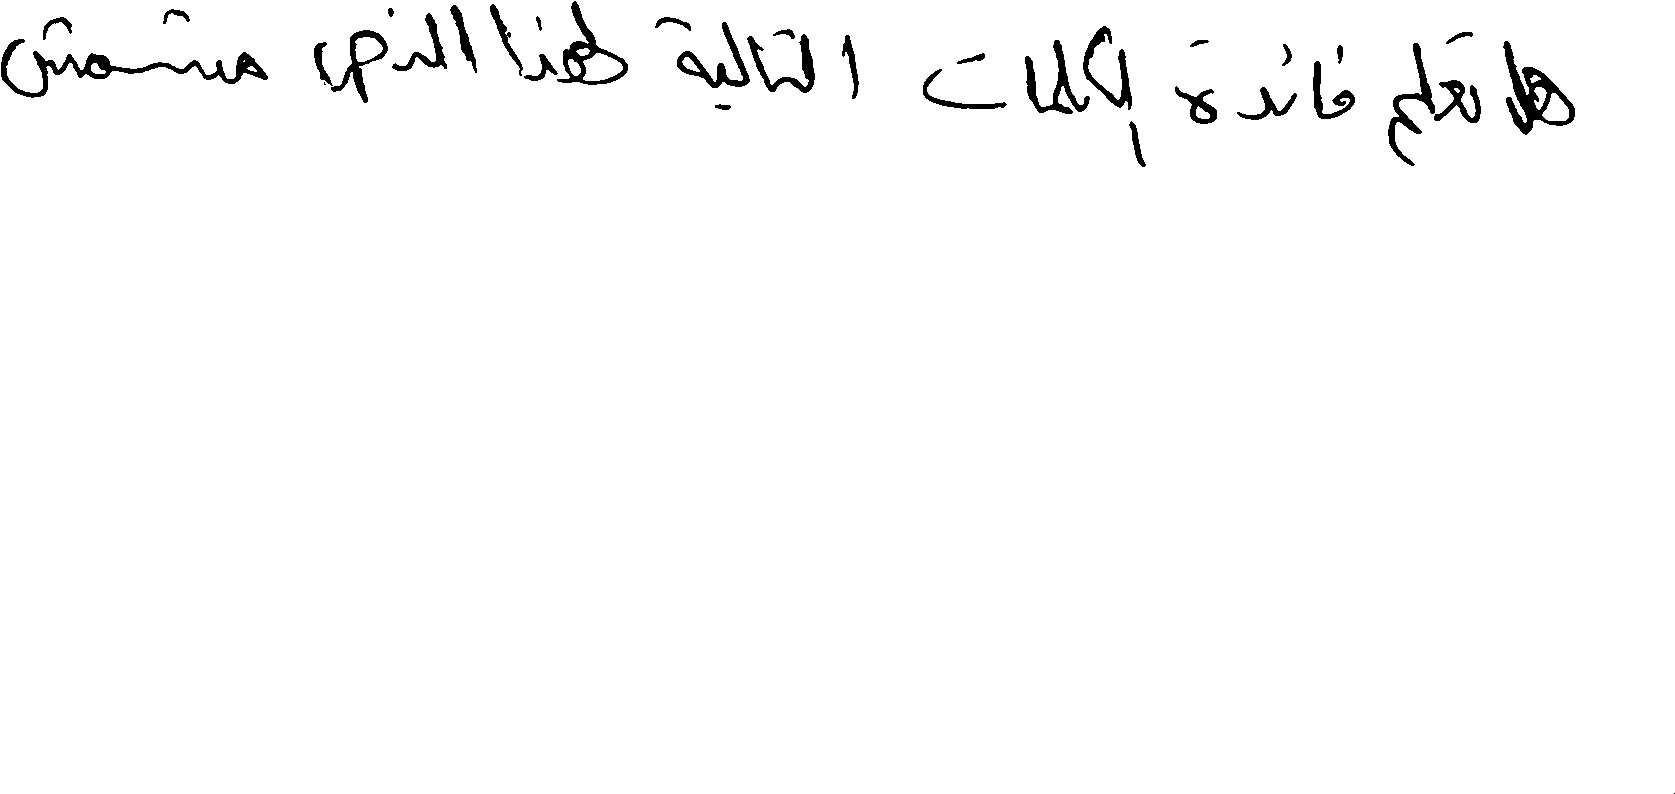 هل تعلم فائدة الكلمات التالية لهذا النص مشمش